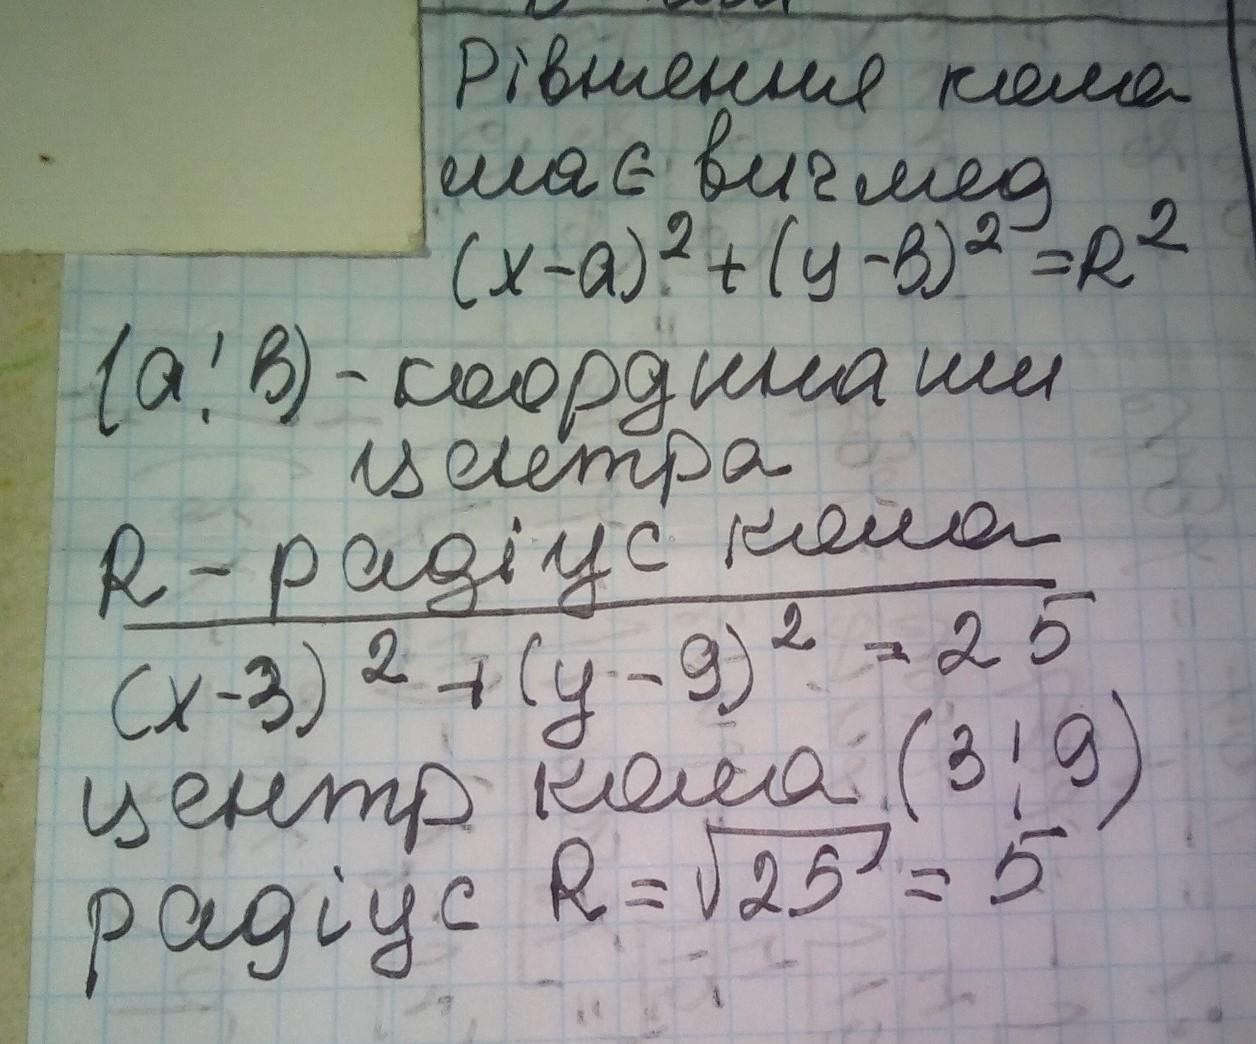 Рівняння кола
має вигляд
(x-a)²+(y-в)²=R²
(a; в)-координати
центра
R-радіус кола
(x-3)²+(y-9)²=25
центр кола (3; 9)
радіус R=√25=5